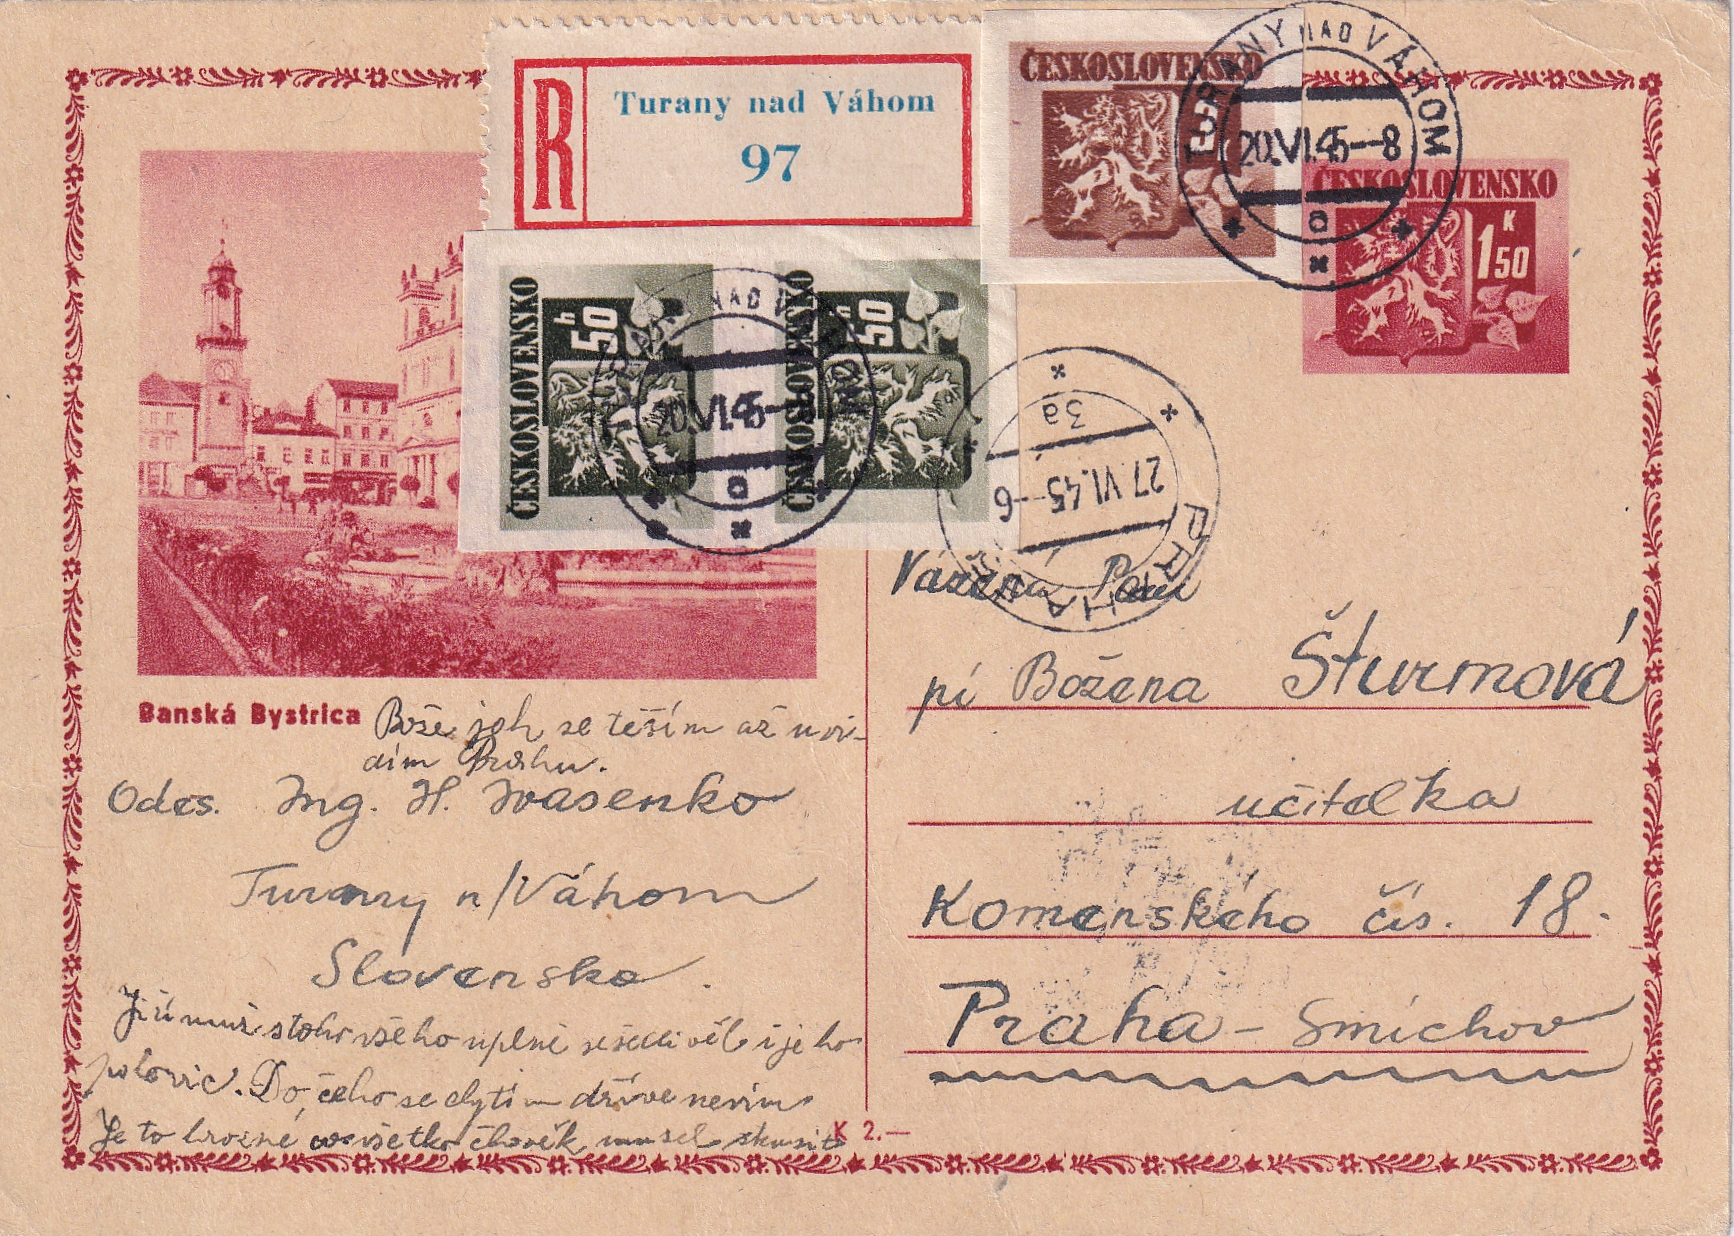 R
Turany nad Váhom
97
ČESKOSLOVENSKO
3
TURANY NAD VÁHOM
20.VI.45--8
a
ČESKOSLOVENSKO
1 K 50
ČESKOSLOVENSKO
50 h
ČESKOSLOVENSKO
50 h
NAD
20.VI.45-
a
3a
27.VI.45--6
PRAHA
Banská Bystrica
Bože, jak se těším až uvi-
dím Prahu.
Odes. Ing. H. Ivasenko
Turany n/Váhom
Slovensko.
Vážená Paní
pí Božena Šturmová
učitelka
Komenského čís. 18.
Praha – Smíchov
z toho všeho úplně i jeho
polovic. Do čeho se chytím dříve nevím
Je to hrozné, co všetko člověk musel skusit
K 2.—